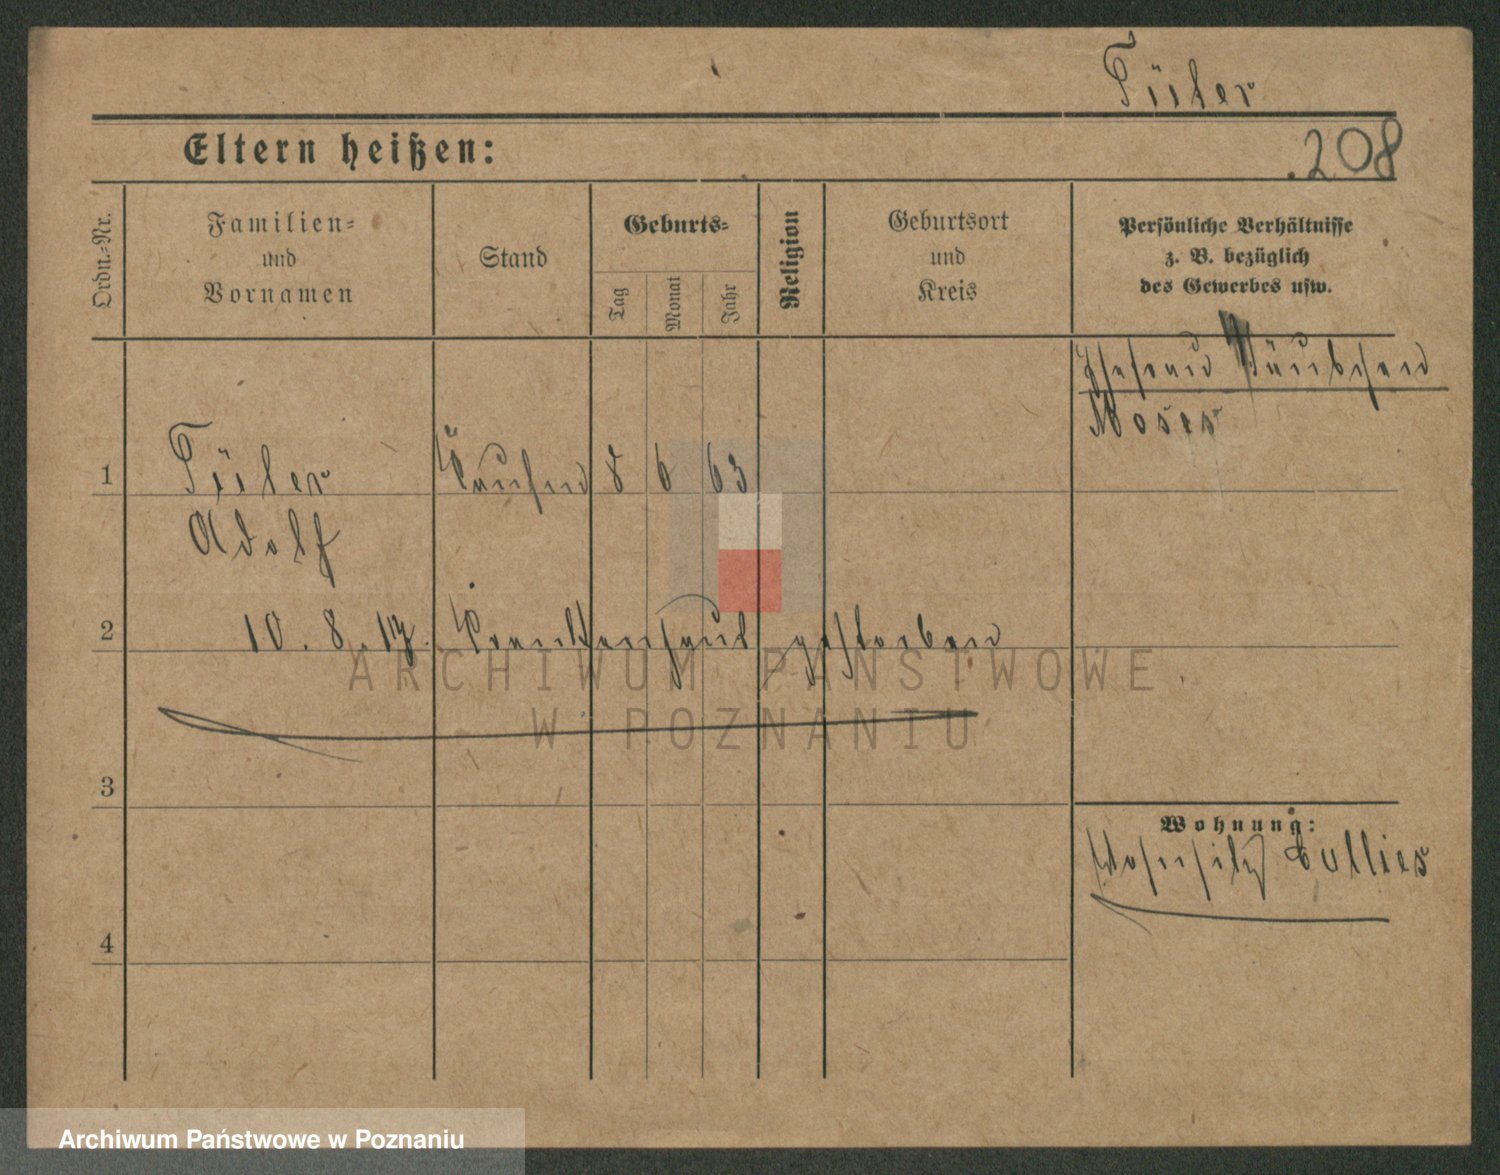 Tüler
Eltern heißen:
.208
Ordn.=Nr.
Familien=
und
Vornamen
Stand
Geburts=
Tag
Monat
Jahr
Religion
Geburtsort
und
Kreis
Persönliche Verhältnisse
z. B. bezüglich
des Gewerbes usw.
Ehefrau
Moses
1
Tüler
8 6 63
Adolf
2
10. 8. 17. Krankenhaus gestorben
3
Wohnung:
Wohnsitz
4
ARCHIWUM PAŃSTWOWE
W POZNANIU
Archiwum Państwowe w Poznaniu